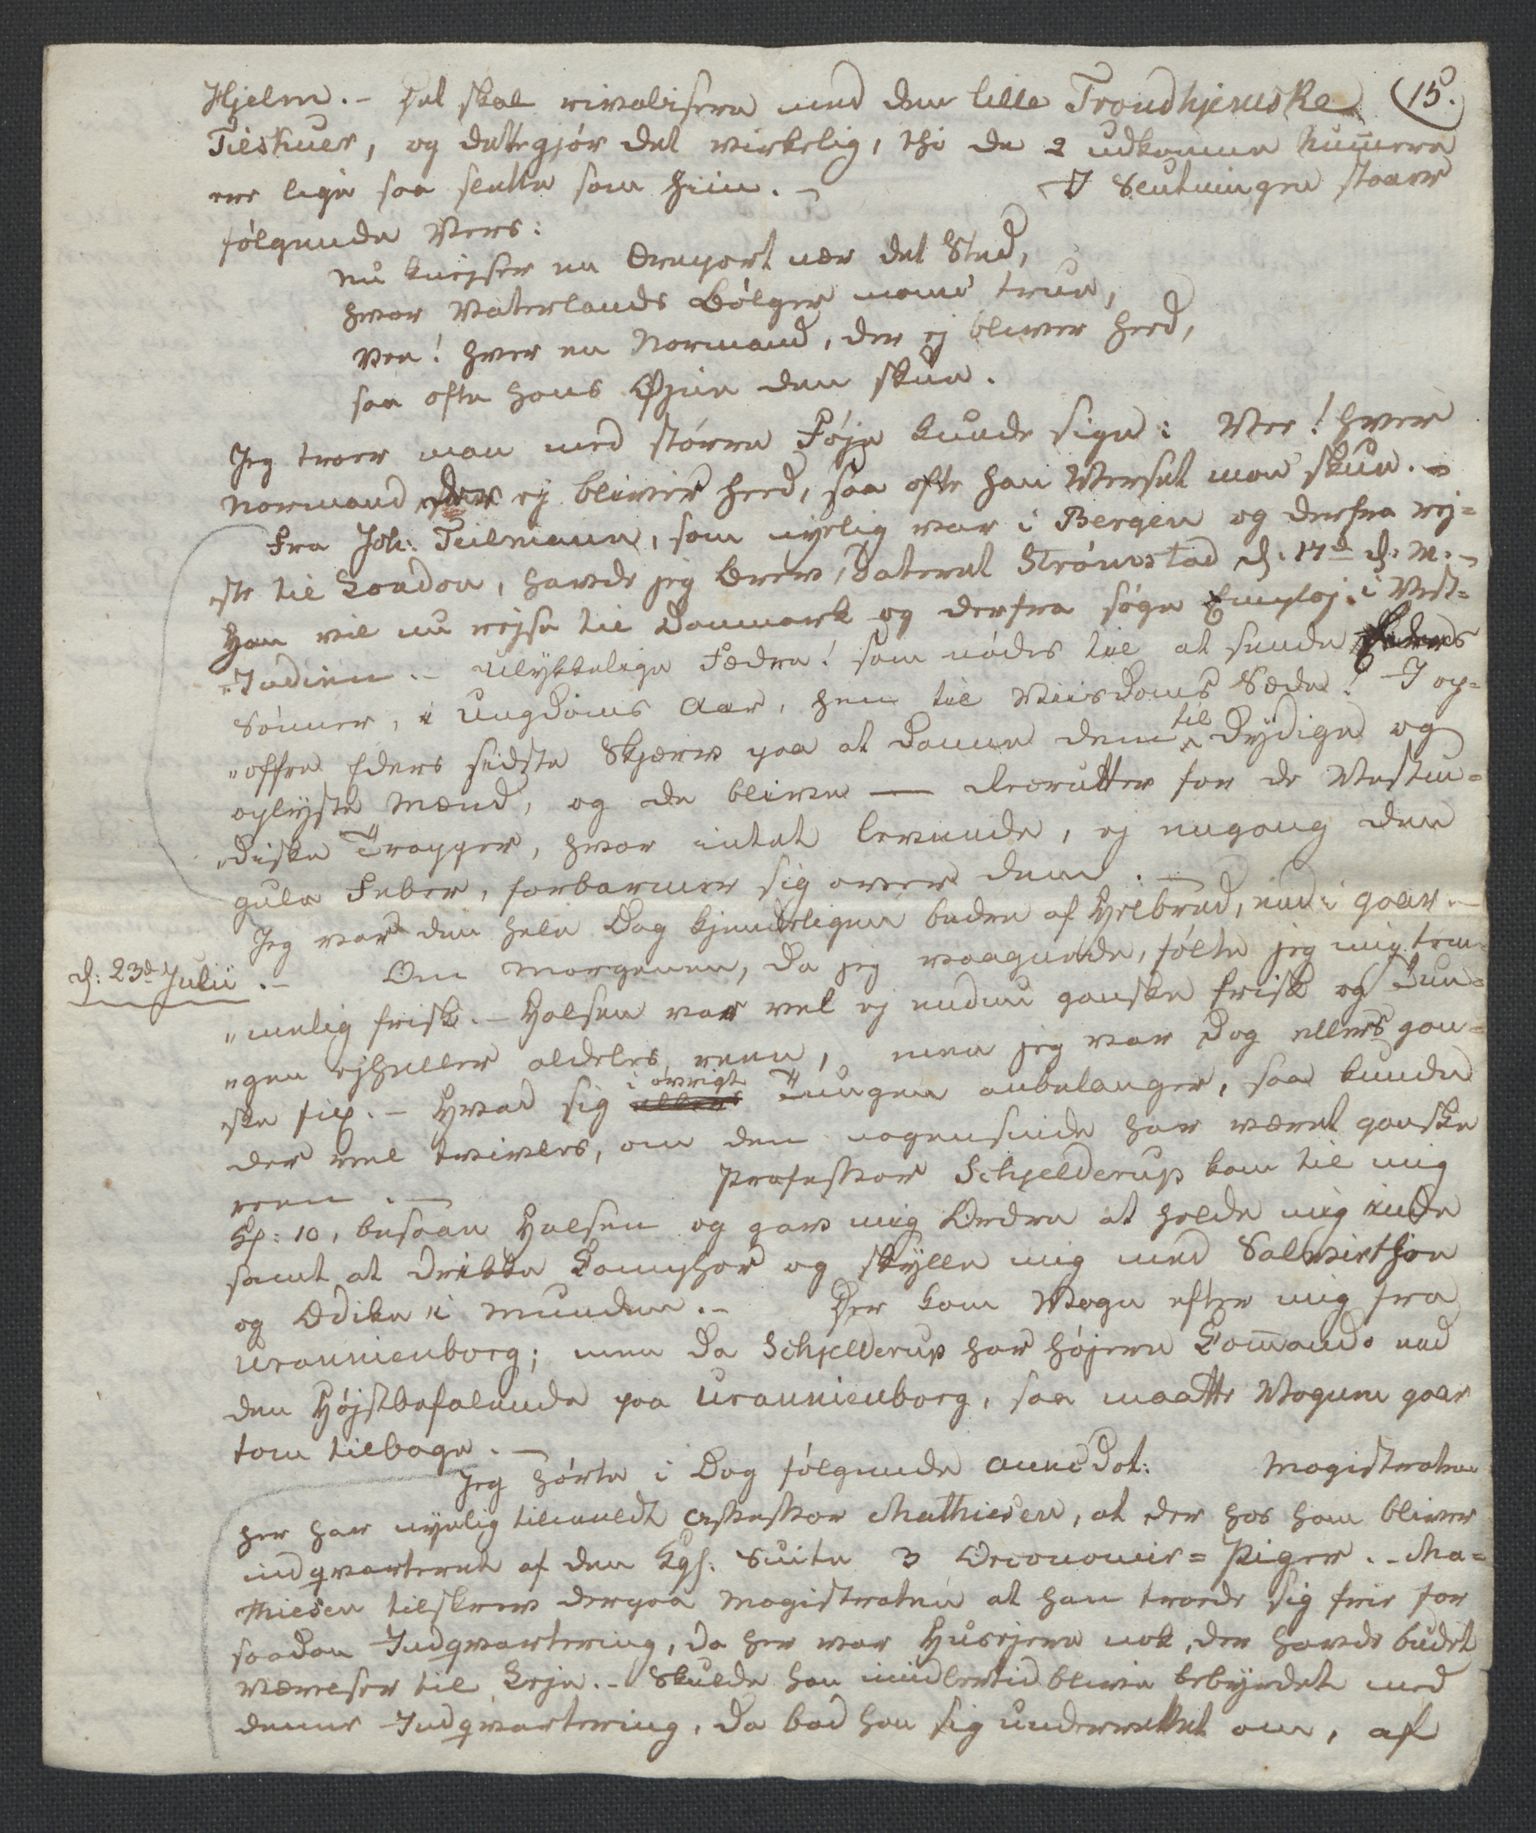 15.
Hjelm. - Det skal rivalisere med den lille Trondhjemske
Tilskuer, og dette gjør det virkelig, thi de 2 udkomne Nummere
ere lige saa slette som hiin. - I Slutningen staaer
følgende Vers:
Nu knejser en Æreport nær det Sted,
hvor Vaterlands Bølger mone true,
Vee! hver en Normand, der ej bliver heed,
saa ofte hans Øjne den skue.
Jeg troer man med større Føje kunde sige: Vee! hver
Normand der ej bliver heed, saa ofte han Verset mon skue. -
Fra Joh: Tulmann, som nyelig var i Bergen og derfra rej=
ste til London, havde jeg Brev, dateret Strømstad d. 17de d. M. -
Han vil nu rejse til Danmark og derfra søge Emploj i Vest=
"Indien. - Ulykkelige Fædre! som nødes til at sende Eders
Sønner, i Ungdoms Aar, hen til Viisdoms Sæde! I op=
"offre Eders sidste Skjærv paa at danne dem til dydige og
oplyste Mænd, og de blive — Recrutter for de Vestin=
"diske Tropper, hvor intet levende, ej engang den
gule Feber, forbarmer sig over dem. -
Jeg var den hele Dag kjendeligen bedre af Helbred, end i gaar. -
d: 23de Julii. - Om Morgenen, da jeg vaagnede, følte jeg mig tem=
"melig frisk. - Halsen var vel ej endnu ganske frisk og Tun=
"gen ejheller aldeles reen, men jeg var dog ellers gan=
ske fix. - Hvad sig ellers i øvrigt Tungen anbelanger, saa kunde
der vel tvivles, om den nogensinde har været ganske
reen. - Professor Schjelderup kom til mig
Kl: 10, besaae Halsen og gav mig Ordre at holde mig inde
samt at drikke Camphor og skylle mig med Salvirthee
og Ædike i Munden. - Der kom Vogn efter mig fra
Uranienborg; men da Schjelderup har højere Commando end
den Højstbefalende paa Uranienborg, saa maatte Vognen gaae
tom tilbage. -
Jeg hørte i Dag følgende Anecdot: Magistraten
her har nyelig tilmeldt Assessor Mathiesen, at der hos ham bliver
indqvarteret af den Kgl: Suite 3 Oeconomie=Piger. - Ma=
thiesen tilskrev derpaa Magistraten at han troede sig frie for
saadan Indqvartering, da her var Husejere nok, der havde budet
Værelser til Leje. - Skulde han imidlertid blive bebyrdet med
denne Indqvartering, da bad han sig underrettet om, af